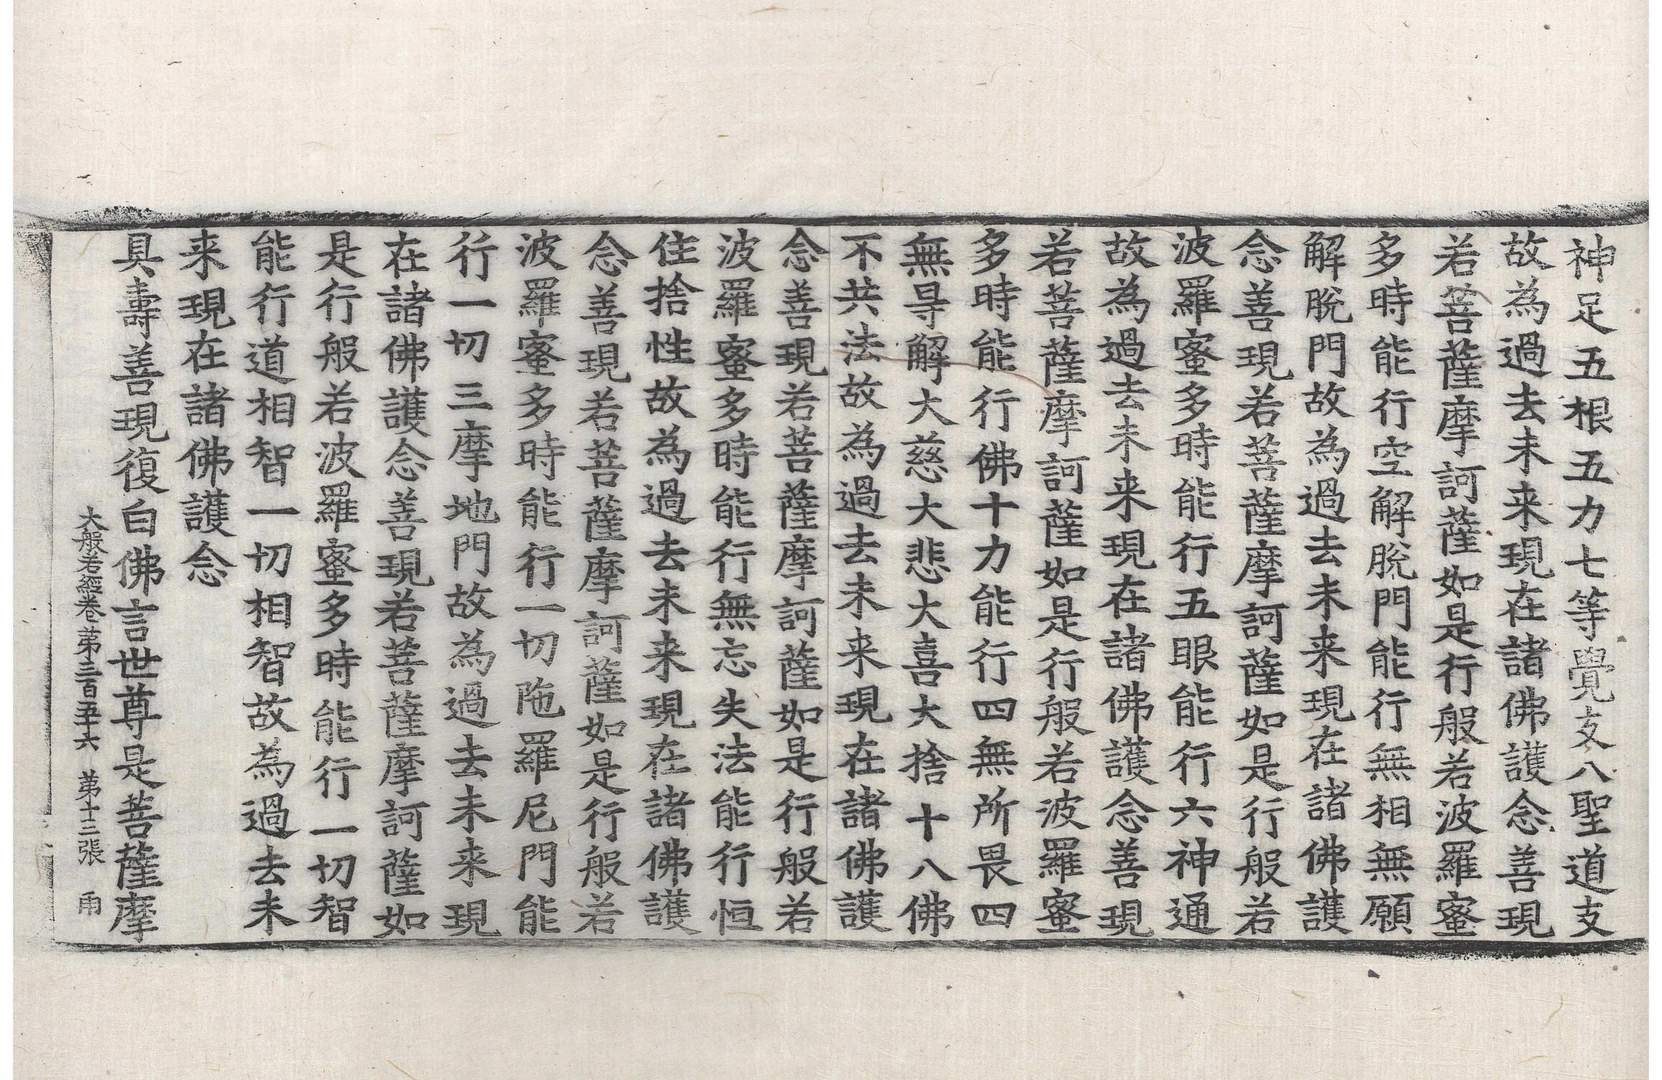 神足五根五力七等覺支八聖道支
故為過去未来現在諸佛護念善現
若菩薩摩訶薩如是行般若波羅蜜
多時能行空解脫門能行無相無願
解脫門故為過去未来現在諸佛護
念善現若菩薩摩訶薩如是行般若
波羅蜜多時能行五眼能行六神通
故為過去未来現在諸佛護念善現
若菩薩摩訶薩如是行般若波羅蜜
多時能行佛十力能行四無所畏四
無㝵解大慈大悲大喜大捨十八佛
不共法故為過去未来現在諸佛護
念善現若菩薩摩訶薩如是行般若
波羅蜜多時能行無忘失法能行恒
住捨性故為過去未来現在諸佛護
念善現若菩薩摩訶薩如是行般若
波羅蜜多時能行一切陁羅尼門能
行一切三摩地門故為過去未来現
在諸佛護念善現若菩薩摩訶薩如
是行般若波羅蜜多時能行一切智
能行道相智一切相智故為過去未
来現在諸佛護念
具壽善現復白佛言世尊是菩薩摩
大般若經卷第三百五十六 第十三張 雨